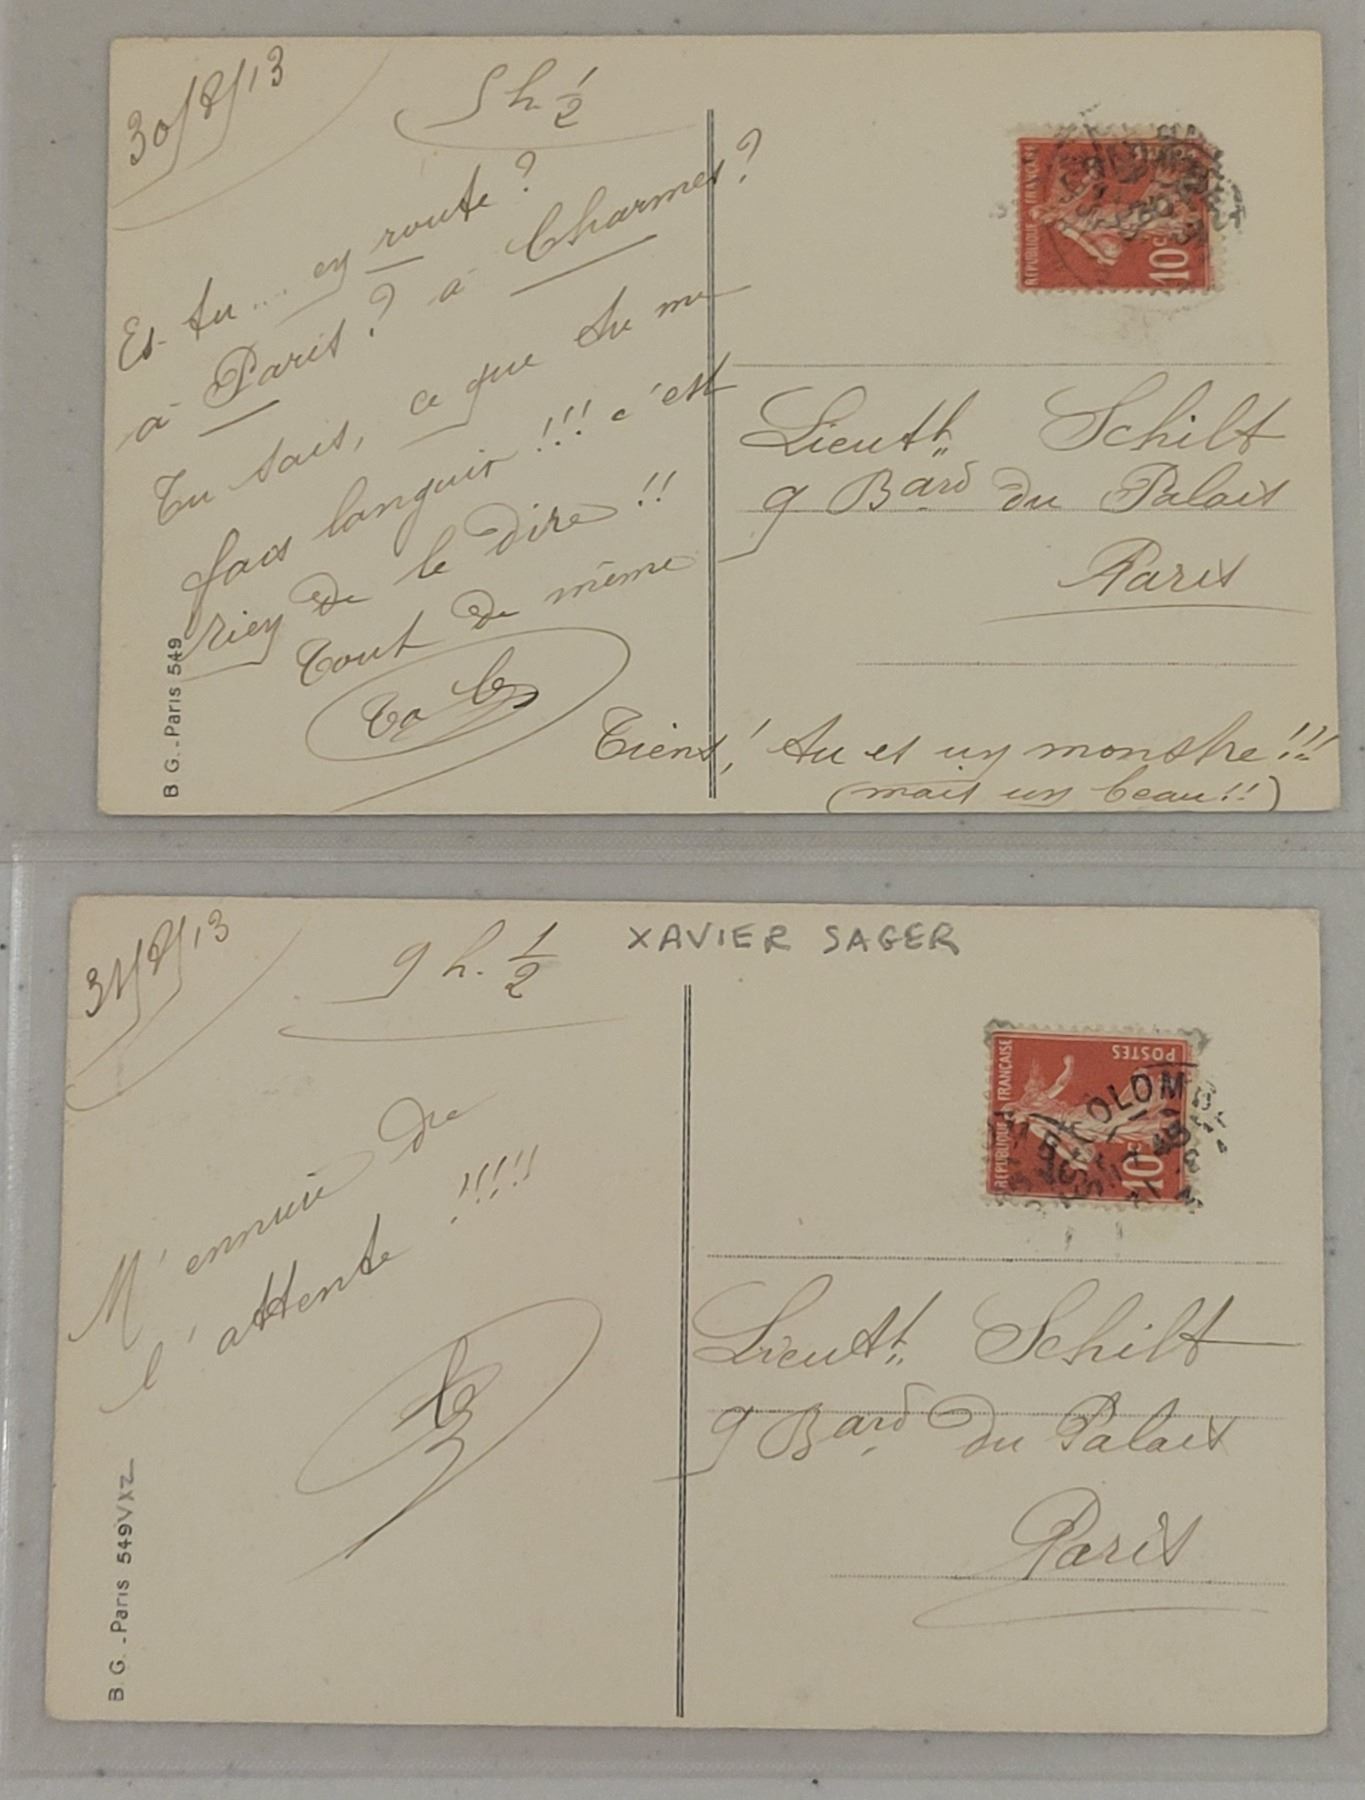 30/8/13
5 h. 1/2
Es-tu.... en route?
à Paris? à Charmes?
Tu sais, ce que tu me
fais languir!!! c'est
rien de le dire!!
Tout de même
Tiens! tu es un monstre!!!
(mais un beau!!)
RÉPUBLIQUE FRANÇAISE
10c
Lieutt. Schilt
9 Bard du Palais
Paris
B. G. - Paris 549
31/8/13
9 h. 1/2
XAVIER SAGER
M'ennuie de
l'attente!!!!!
RÉPUBLIQUE FRANÇAISE
POSTES
10c
Lieutt. Schilt
9 Bard du Palais
Paris
B. G. - Paris 549